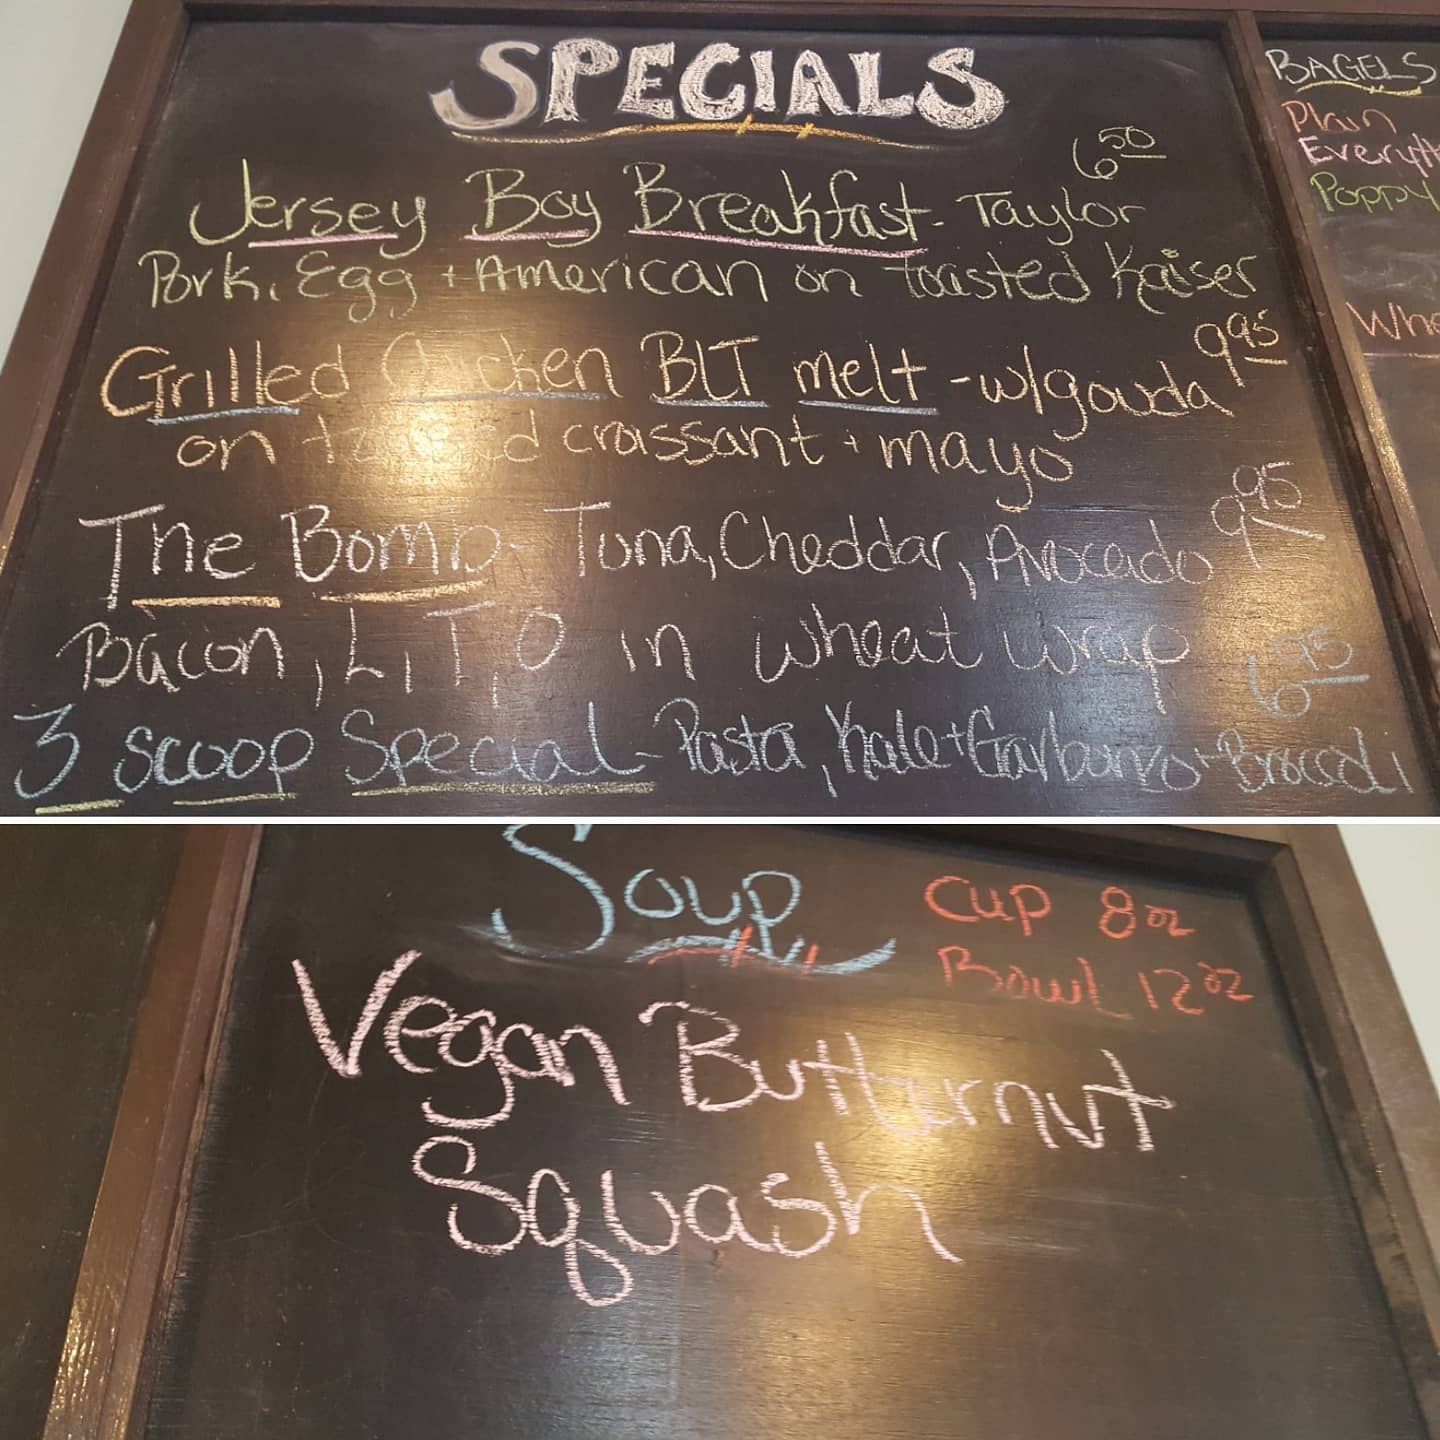 SPECIALS
6 50
Jersey Boy Breakfast - Taylor
Pork, Egg + American on toasted Kaiser
9 95
Grilled Chicken BLT melt - w/gouda
on toasted croissant + mayo
9 95
The Bomb - Tuna, Cheddar, Avocado
Bacon, L, T, O in wheat wrap
6 95
3 scoop Special - Pasta, Kale + Garbanzo + Broccoli
BAGELS
Plain
Everyth
Poppy
Whe
Soup
Cup 8 oz
Bowl 12 oz
Vegan Butternut
Squash